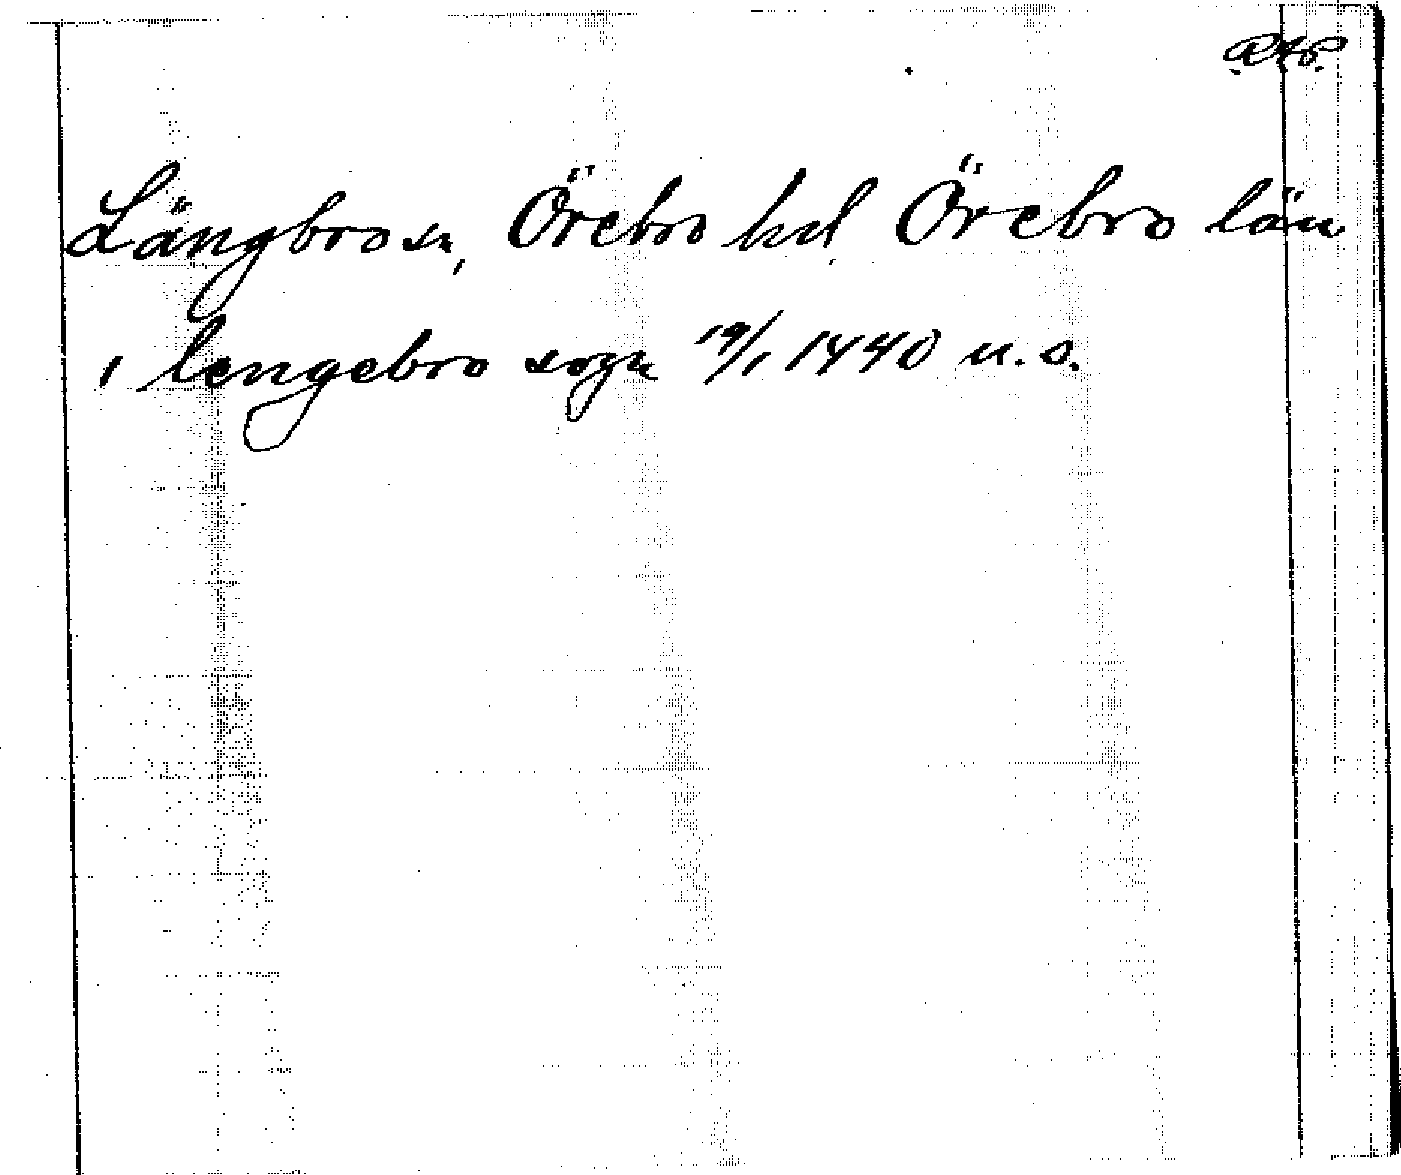 RAP.
Längbro sn, Örebro hd, Örebro län
i lengebro sogn 19/1 1440 u. o.